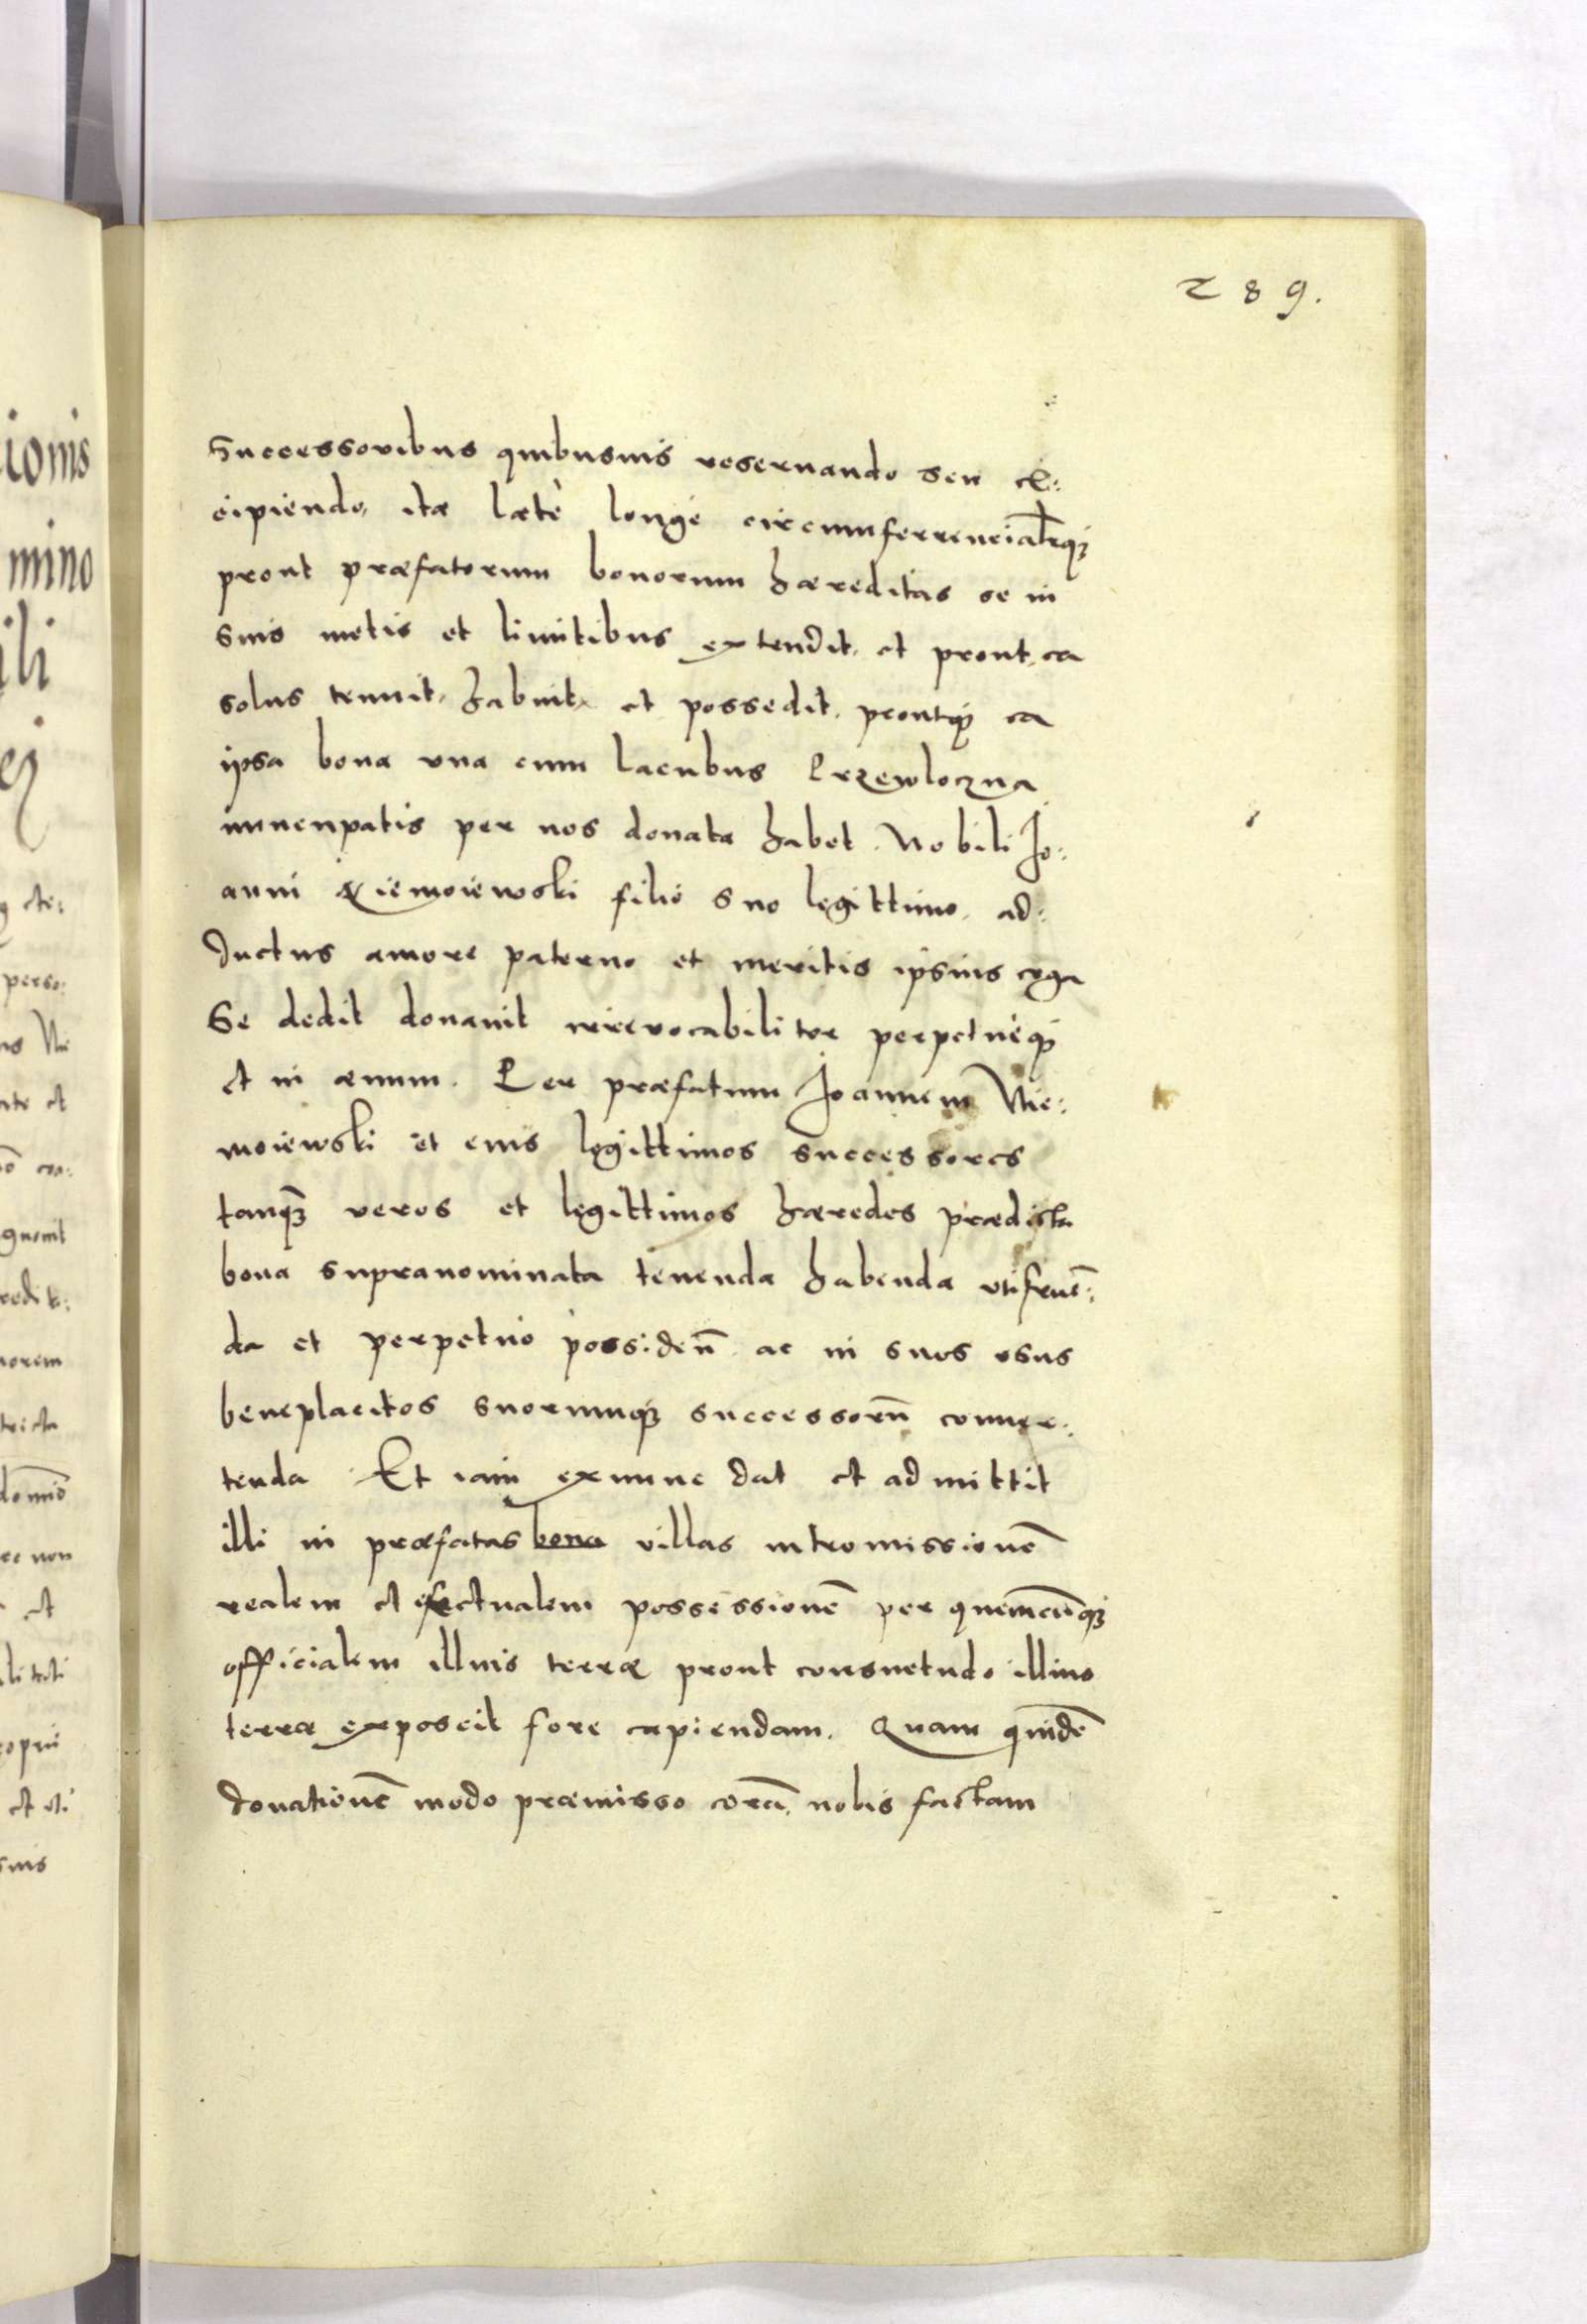 289.
Successoribus quibusuis reseruando seu ex:
cipiendo, ita latè longè circumferrencialrqȝ
prout præfatorum bonorum hæreditas se in
suis metis et limitibus extendit, et prout, ea
solus tenuit, habuit, et possedit, proutqȝ ea
ipsa bona vna cum lacubus Przewloczna
nuncupatis per nos donata habet. Nobili Jo:
anni Niemoiewski filio suo legittimo, ad:
ductus amore paterno et meritis ipsius erga
se dedit donauit irreuocabiliter perpetuèqȝ
et in æuum. Per præfatum Joannem Nie:
moiewski et eius legittimos successores
tanqȝ veros et legittimos hæredes prædicta
bona supranominata tenenda habenda utifruē:
da et perpetuo possideñ ac in suos vsus
beneplacitos suorumqȝ successorū conuer:
tenda. Et iam exnunc dat et admittit
illi in præfatas bona villas intromissionē
realem et efectualem possessionē per quemcūqȝ
officialem illuis terræ prout consuetudo illius
terræ exposcit fore capiendam. Quam quidē
donationē modo præmisso corā nobis factam